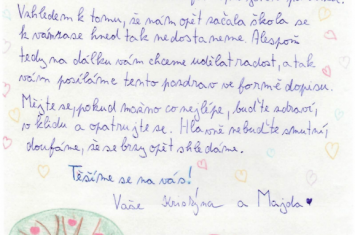 Vzhledem k tomu, že nám opět začala škola se
k vám zase hned tak nedostaneme. Alespoň
tedy na dálku vám chceme udělat radost, a tak
vám posíláme tento pozdrav ve formě dopisu.
Mějte se, pokud možno co nejlépe, buďte zdraví,
v klidu a opatrujte se. Hlavně nebuďte smutní,
doufáme, že se brzy opět shledáme.
Těšíme se na vás!
Vaše Kristýna a Majda